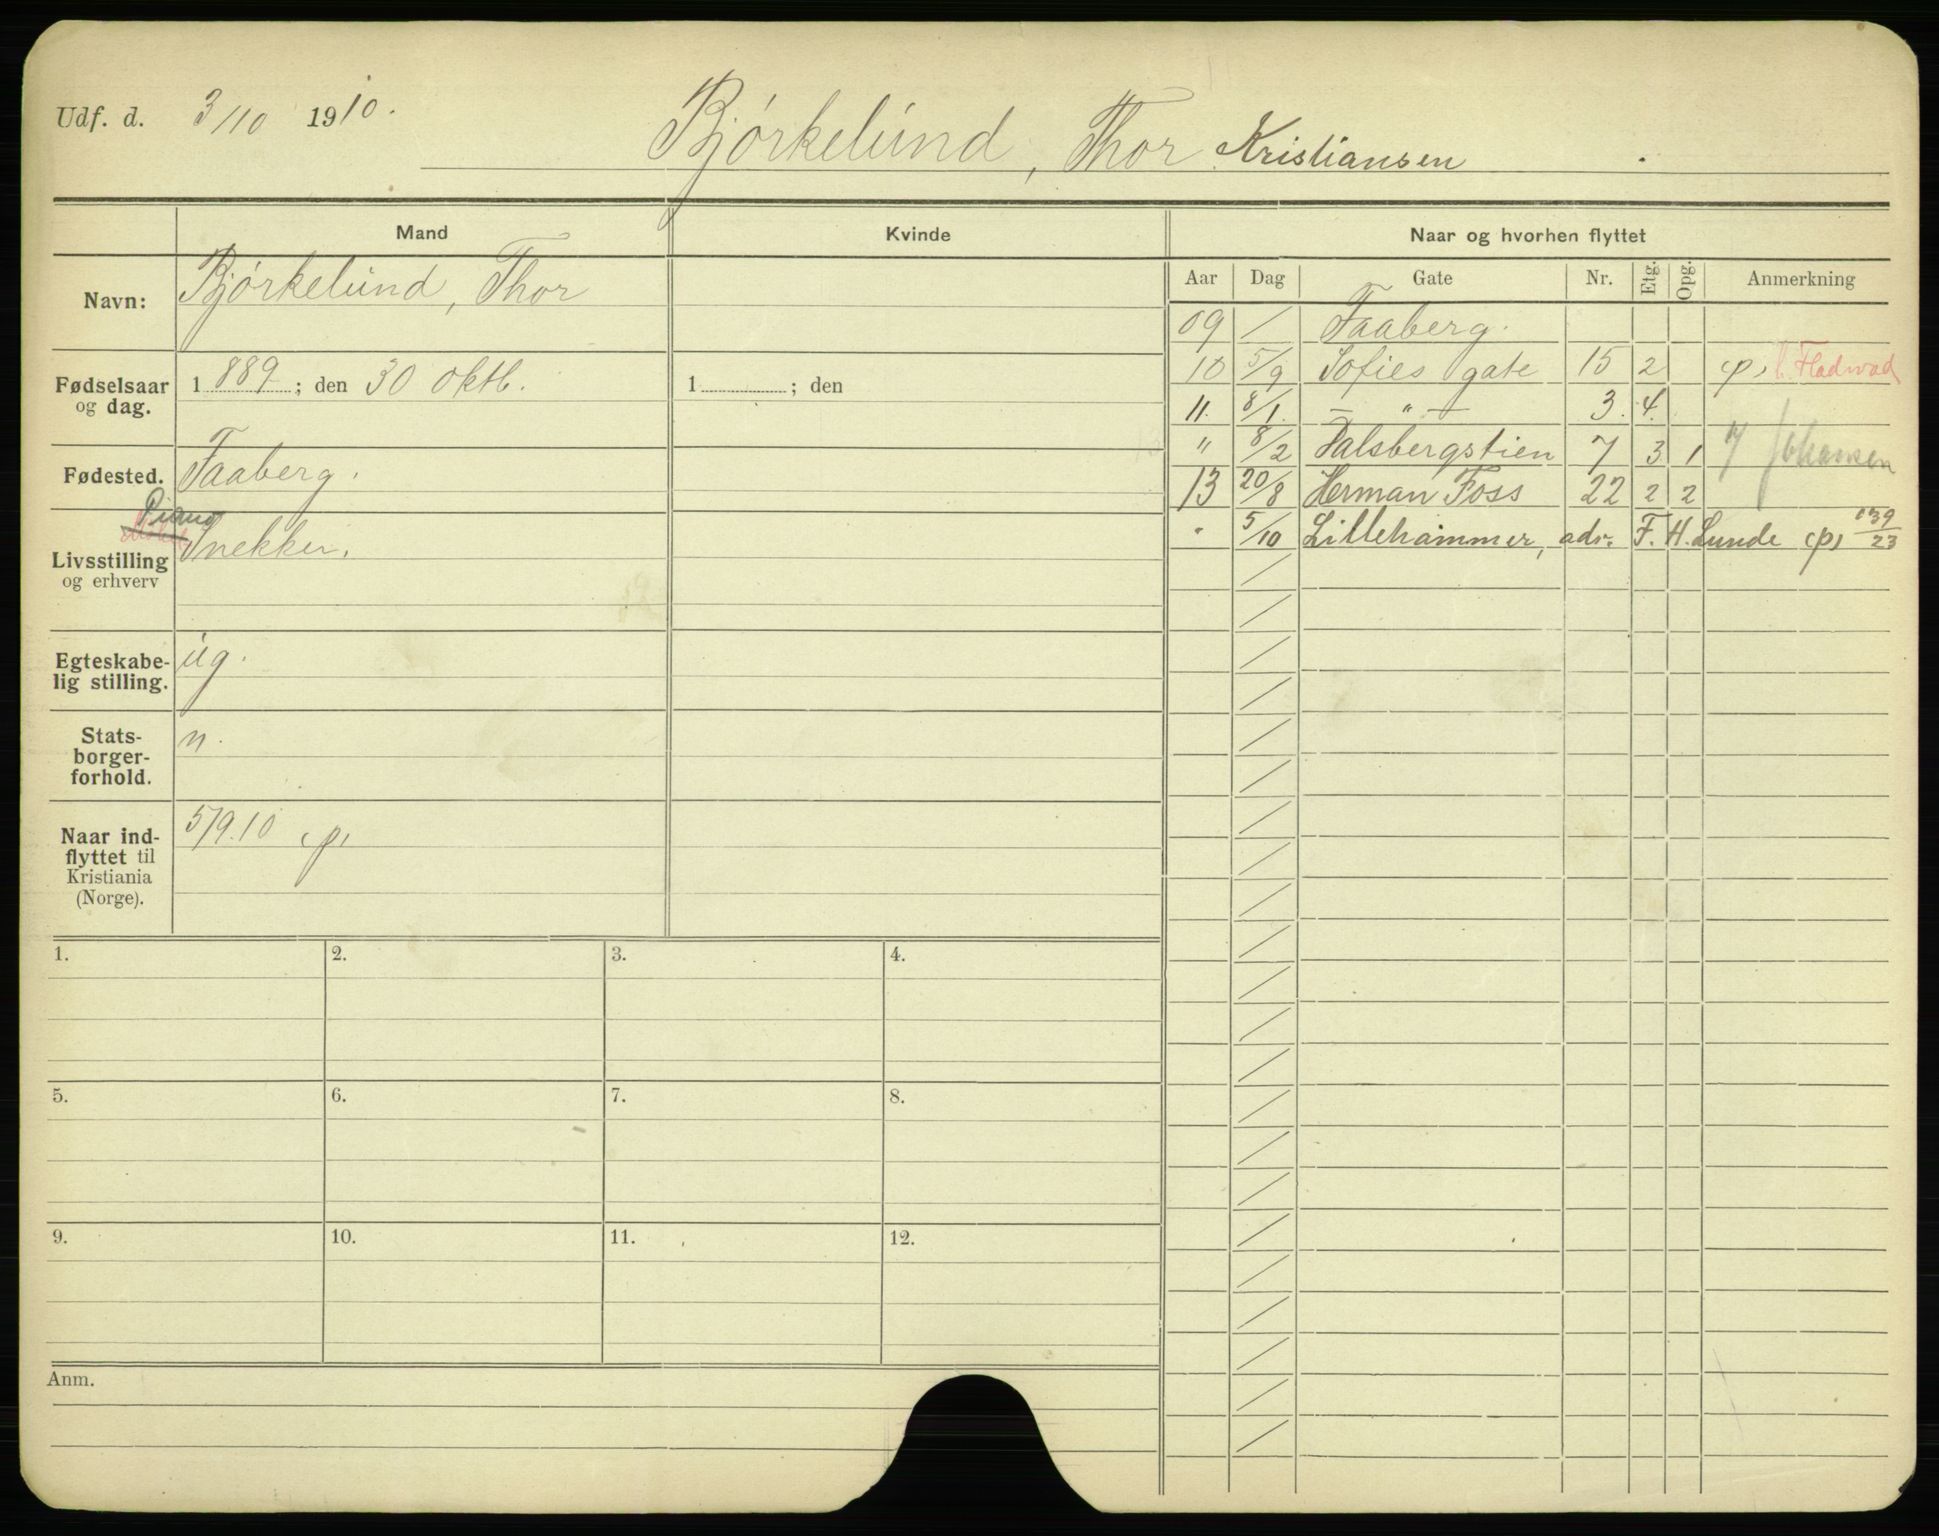 Udf. d. 3/10 1910.
Bjørkelund, Thor Kristiansen
Mand
Kvinde
Naar og hvorhen flyttet
Navn: Bjørkelund, Thor
Fødselsaar og dag. 1889; den 30 oktb.
1 ; den
Fødested. Faaberg.
Piano
Livsstilling og erhverv Snekker.
Egteskabelig stilling. ug.
Statsborgerforhold. n.
Naar indflyttet til Kristiania (Norge). 5/9.10 (p)
Aar Dag Gate Nr. Etg. Opg. Anmerkning
09 / Faaberg.
10 5/9 Sofies gate 15 2 (p)
11. 8/1. — " — 3. 4.
" 8/2 Falsbergstien 7 3 1 Johansen
13 20/8 Herman Foss 22 2 2
" 5/10 Lillehammer, adr. F. H. Lunde (p) 139/23
1. 2. 3. 4.
5. 6. 7. 8.
9. 10. 11. 12.
Anm.